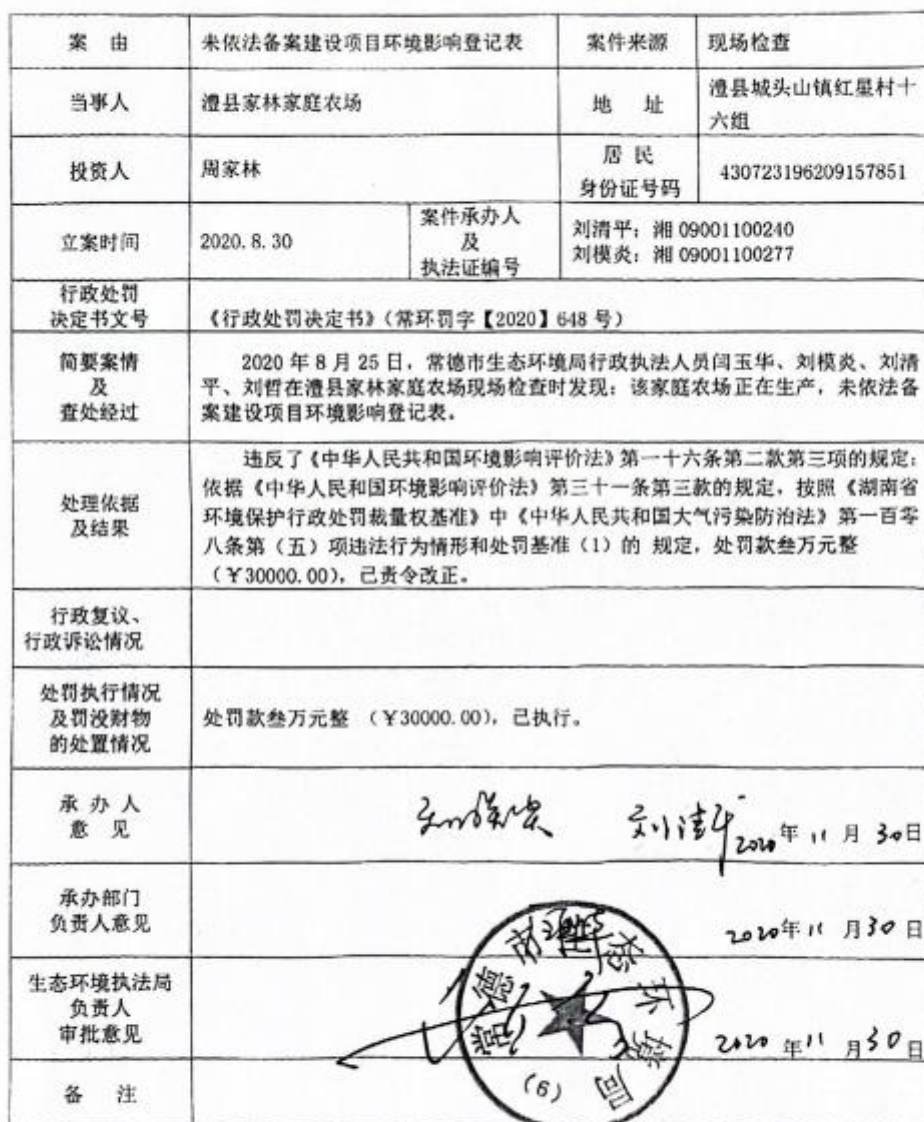 案 由 未依法备案建设项目环境影响登记表 案件来源 现场检查
当事人 澧县家林家庭农场 地 址 澧县城头山镇红星村十
六组
投资人 周家林 居 民
身份证号码 430723196209157851
立案时间 2020.8.30 案件承办人
及
执法证编号 刘清平：湘 09001100240
刘模炎：湘 09001100277
行政处罚
决定书文号 《行政处罚决定书》（常环罚字【2020】648 号）
简要案情
及
查处经过
2020 年 8 月 25 日，常德市生态环境局行政执法人员闫玉华、刘模炎、刘清
平、刘哲在澧县家林家庭农场现场检查时发现：该家庭农场正在生产，未依法备
案建设项目环境影响登记表。
处理依据
及结果
违反了《中华人民共和国环境影响评价法》第一十六条第二款第三项的规定；
依据《中华人民和国环境影响评价法》第三十一条第三款的规定，按照《湖南省
环境保护行政处罚裁量权基准》中《中华人民共和国大气污染防治法》第一百零
八条第（五）项违法行为情形和处罚基准（1）的 规定，处罚款叁万元整
（￥30000.00），已责令改正。
行政复议、
行政诉讼情况
处罚执行情况
及罚没财物
的处置情况
处罚款叁万元整 （￥30000.00），已执行。
承 办 人
意 见
刘模炎 刘清平 2020年 11 月 30日
承办部门
负责人意见
2020年 11 月30 日
生态环境执法局
负责人
审批意见
2020 年11 月30日
常德市生态环境局
(6)
备 注